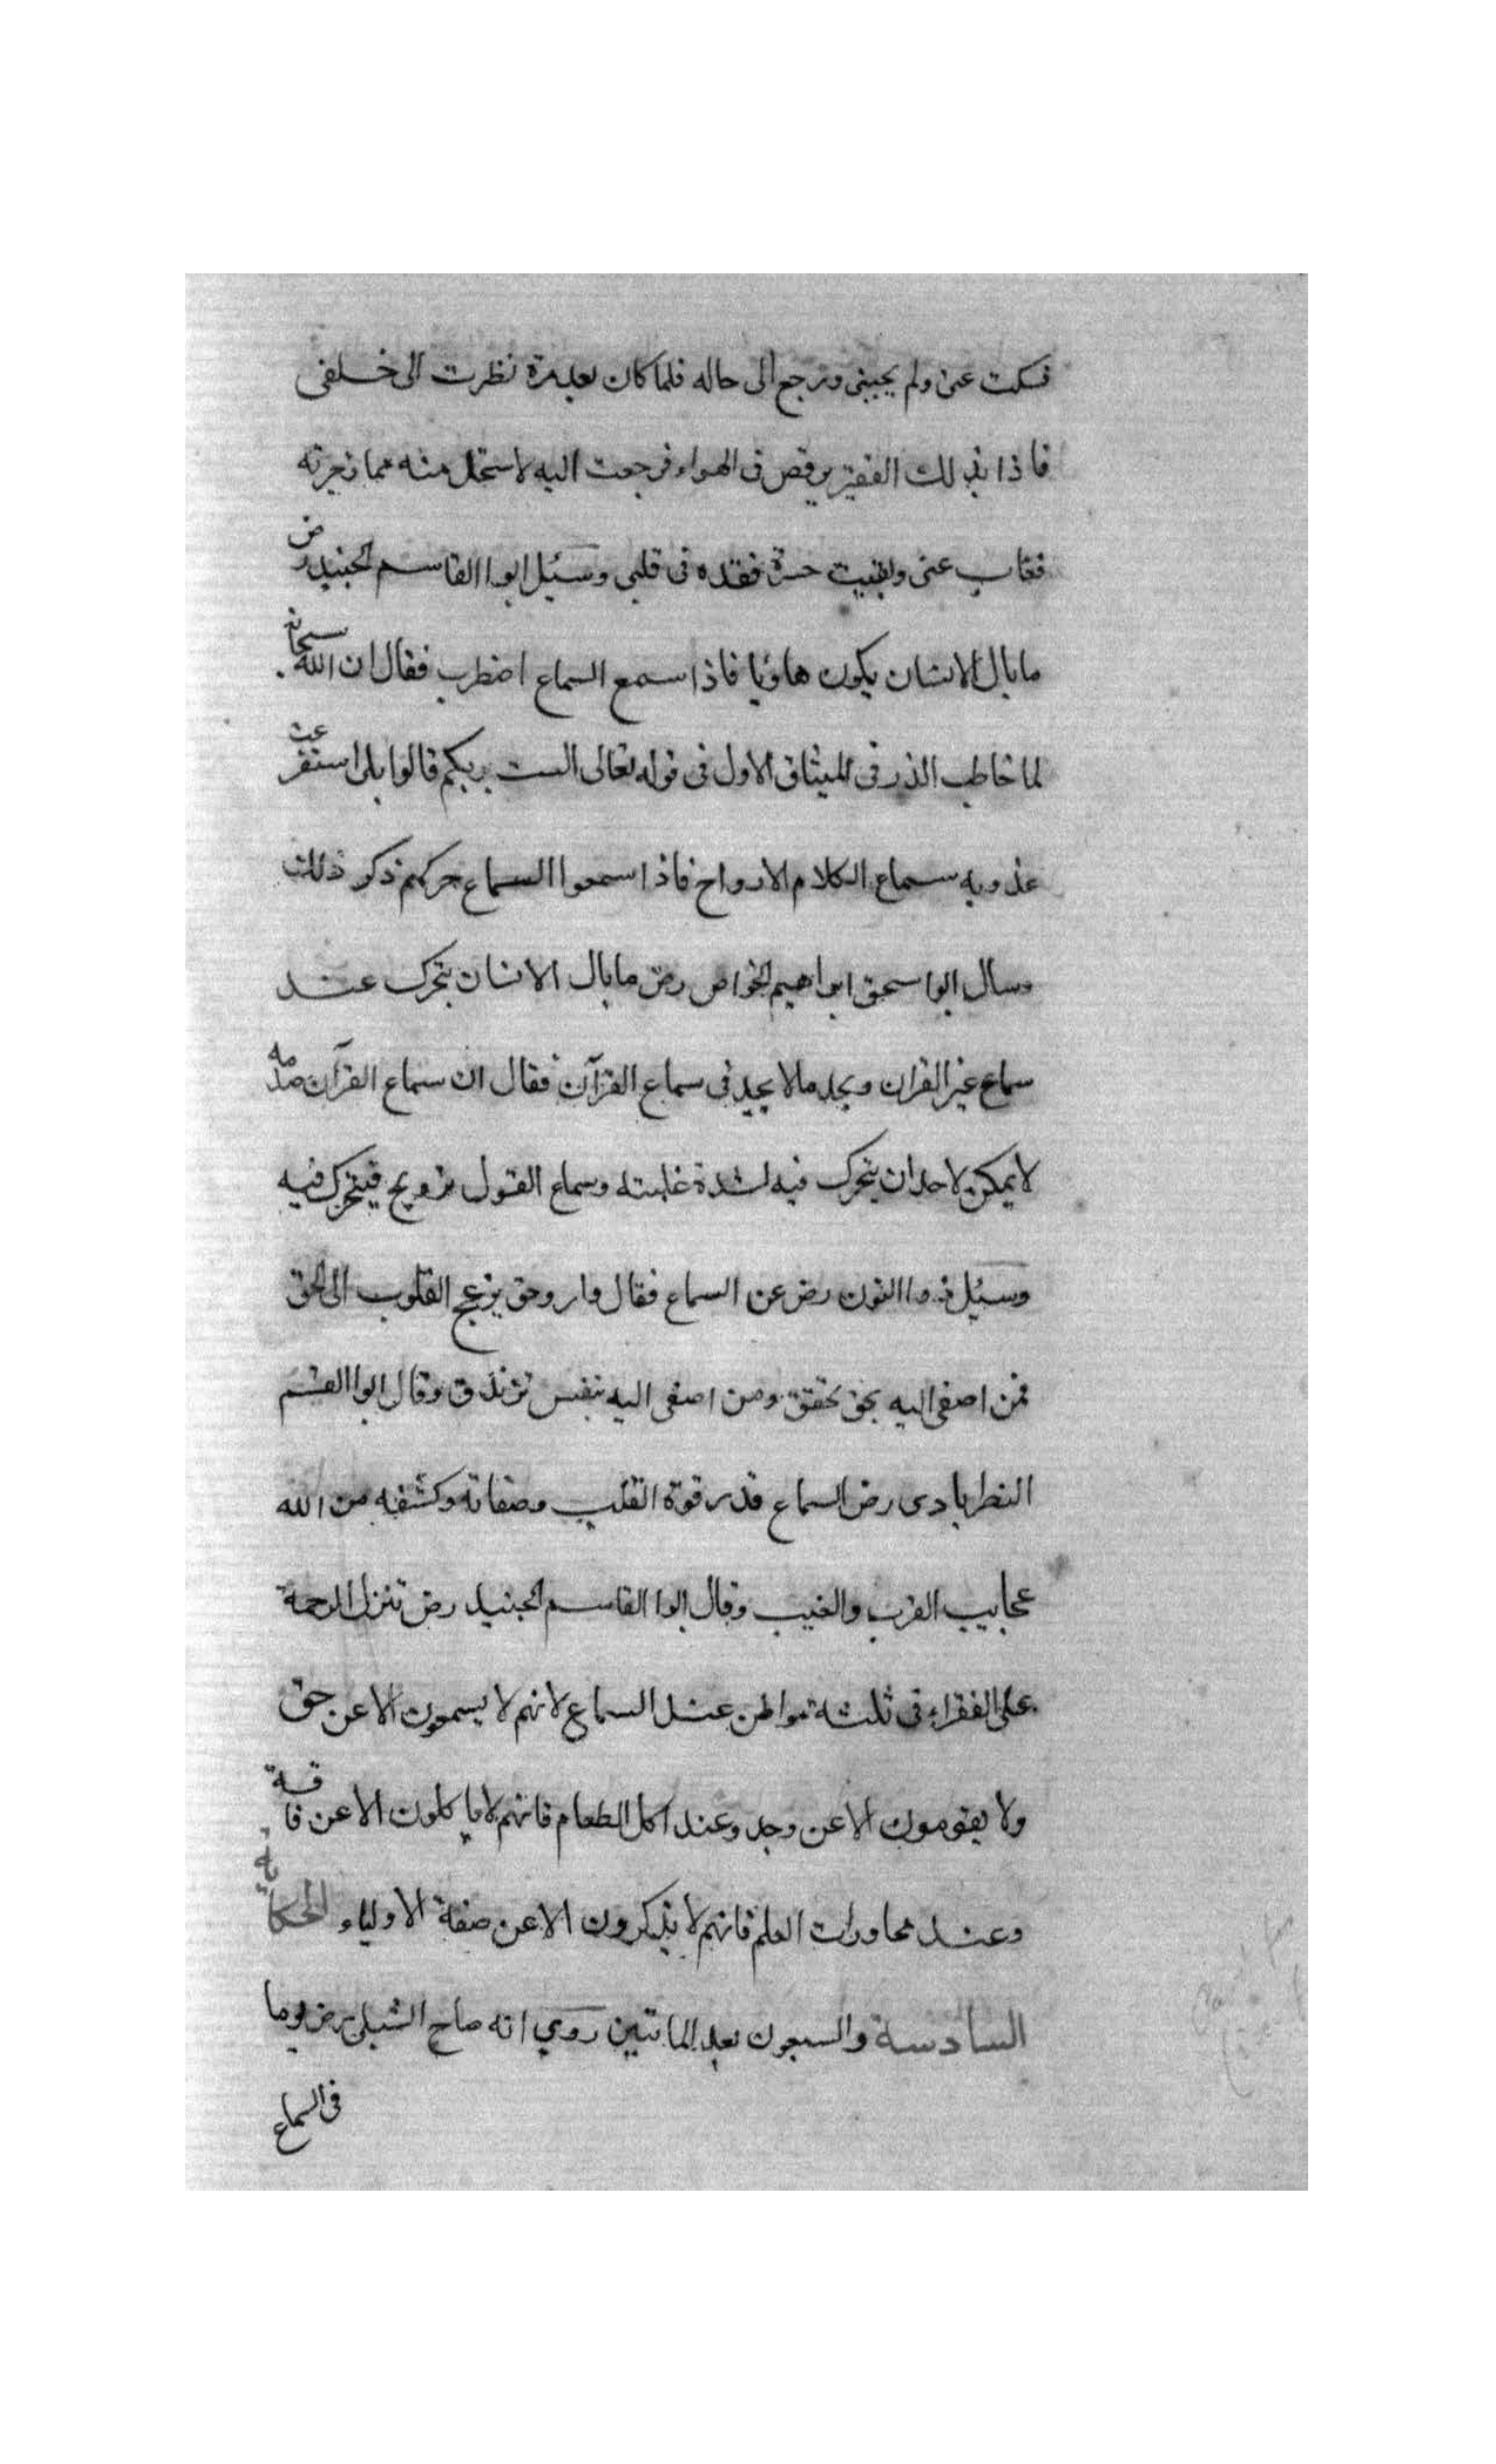 فسكت عنى ولم يجبنى ورجع الى حاله فلما كان بعد مدة نظرت الى خلفى
فاذا بذلك الفقير يرقص فى الهواء فرجعت اليه لاستحل منه مما زجرته
فغاب عنى وبقيت حسرة فقده فى قلبى وسئل ابوا القاسم الجنيد رض
ما بال الانسان يكون هاديا فاذا سمع السماع اضطرب فقال ان الله سبحانه
لما خاطب الذر فى الميثاق الاول فى قوله تعالى الست بربكم قالوا بلى استفرغت
عذوبه سماع الكلام الارواح فاذا سمعوا السماع حركهم ذكر ذلك
وسال ابوا سحق ابراهيم الخواص رض ما بال الانسان يتحرك عند
سماع غير القران ويجد ما لا يجد فى سماع القرآن فقال ان سماع القرآن صدمه
لا يمكن لاحد ان يتحرك فيه لشدة غلبته وسماع القول ترويح فيتحرك فيه
وسئل ذوا النون رض عن السماع فقال وارد حق يزعج القلوب الى الحق
فمن اصغى اليه بحق تحقق ومن اصغى اليه بنفس تزندق وقال ابوا القسم
النصرابادى رض السماع قدر قوة القلب وصفاته وكشفه من الله
عجايب القرب والغيب وقال ابوا القاسم الجنيد رض تنزل الرحمة
على الفقراء فى ثلثة مواطن عند السماع لانهم لا يسمعون الا عن حق
ولا يقومون الا عن وجد وعند اكل الطعام فانهم لا ياكلون الا عن فاقة
وعند محاورات العلم فانهم لا يذكرون الا عن صفة الاولياء الحكاية
السادسة والسبعون بعد الماتين روي انه صاح الشبلى رض يوما
فى السماع